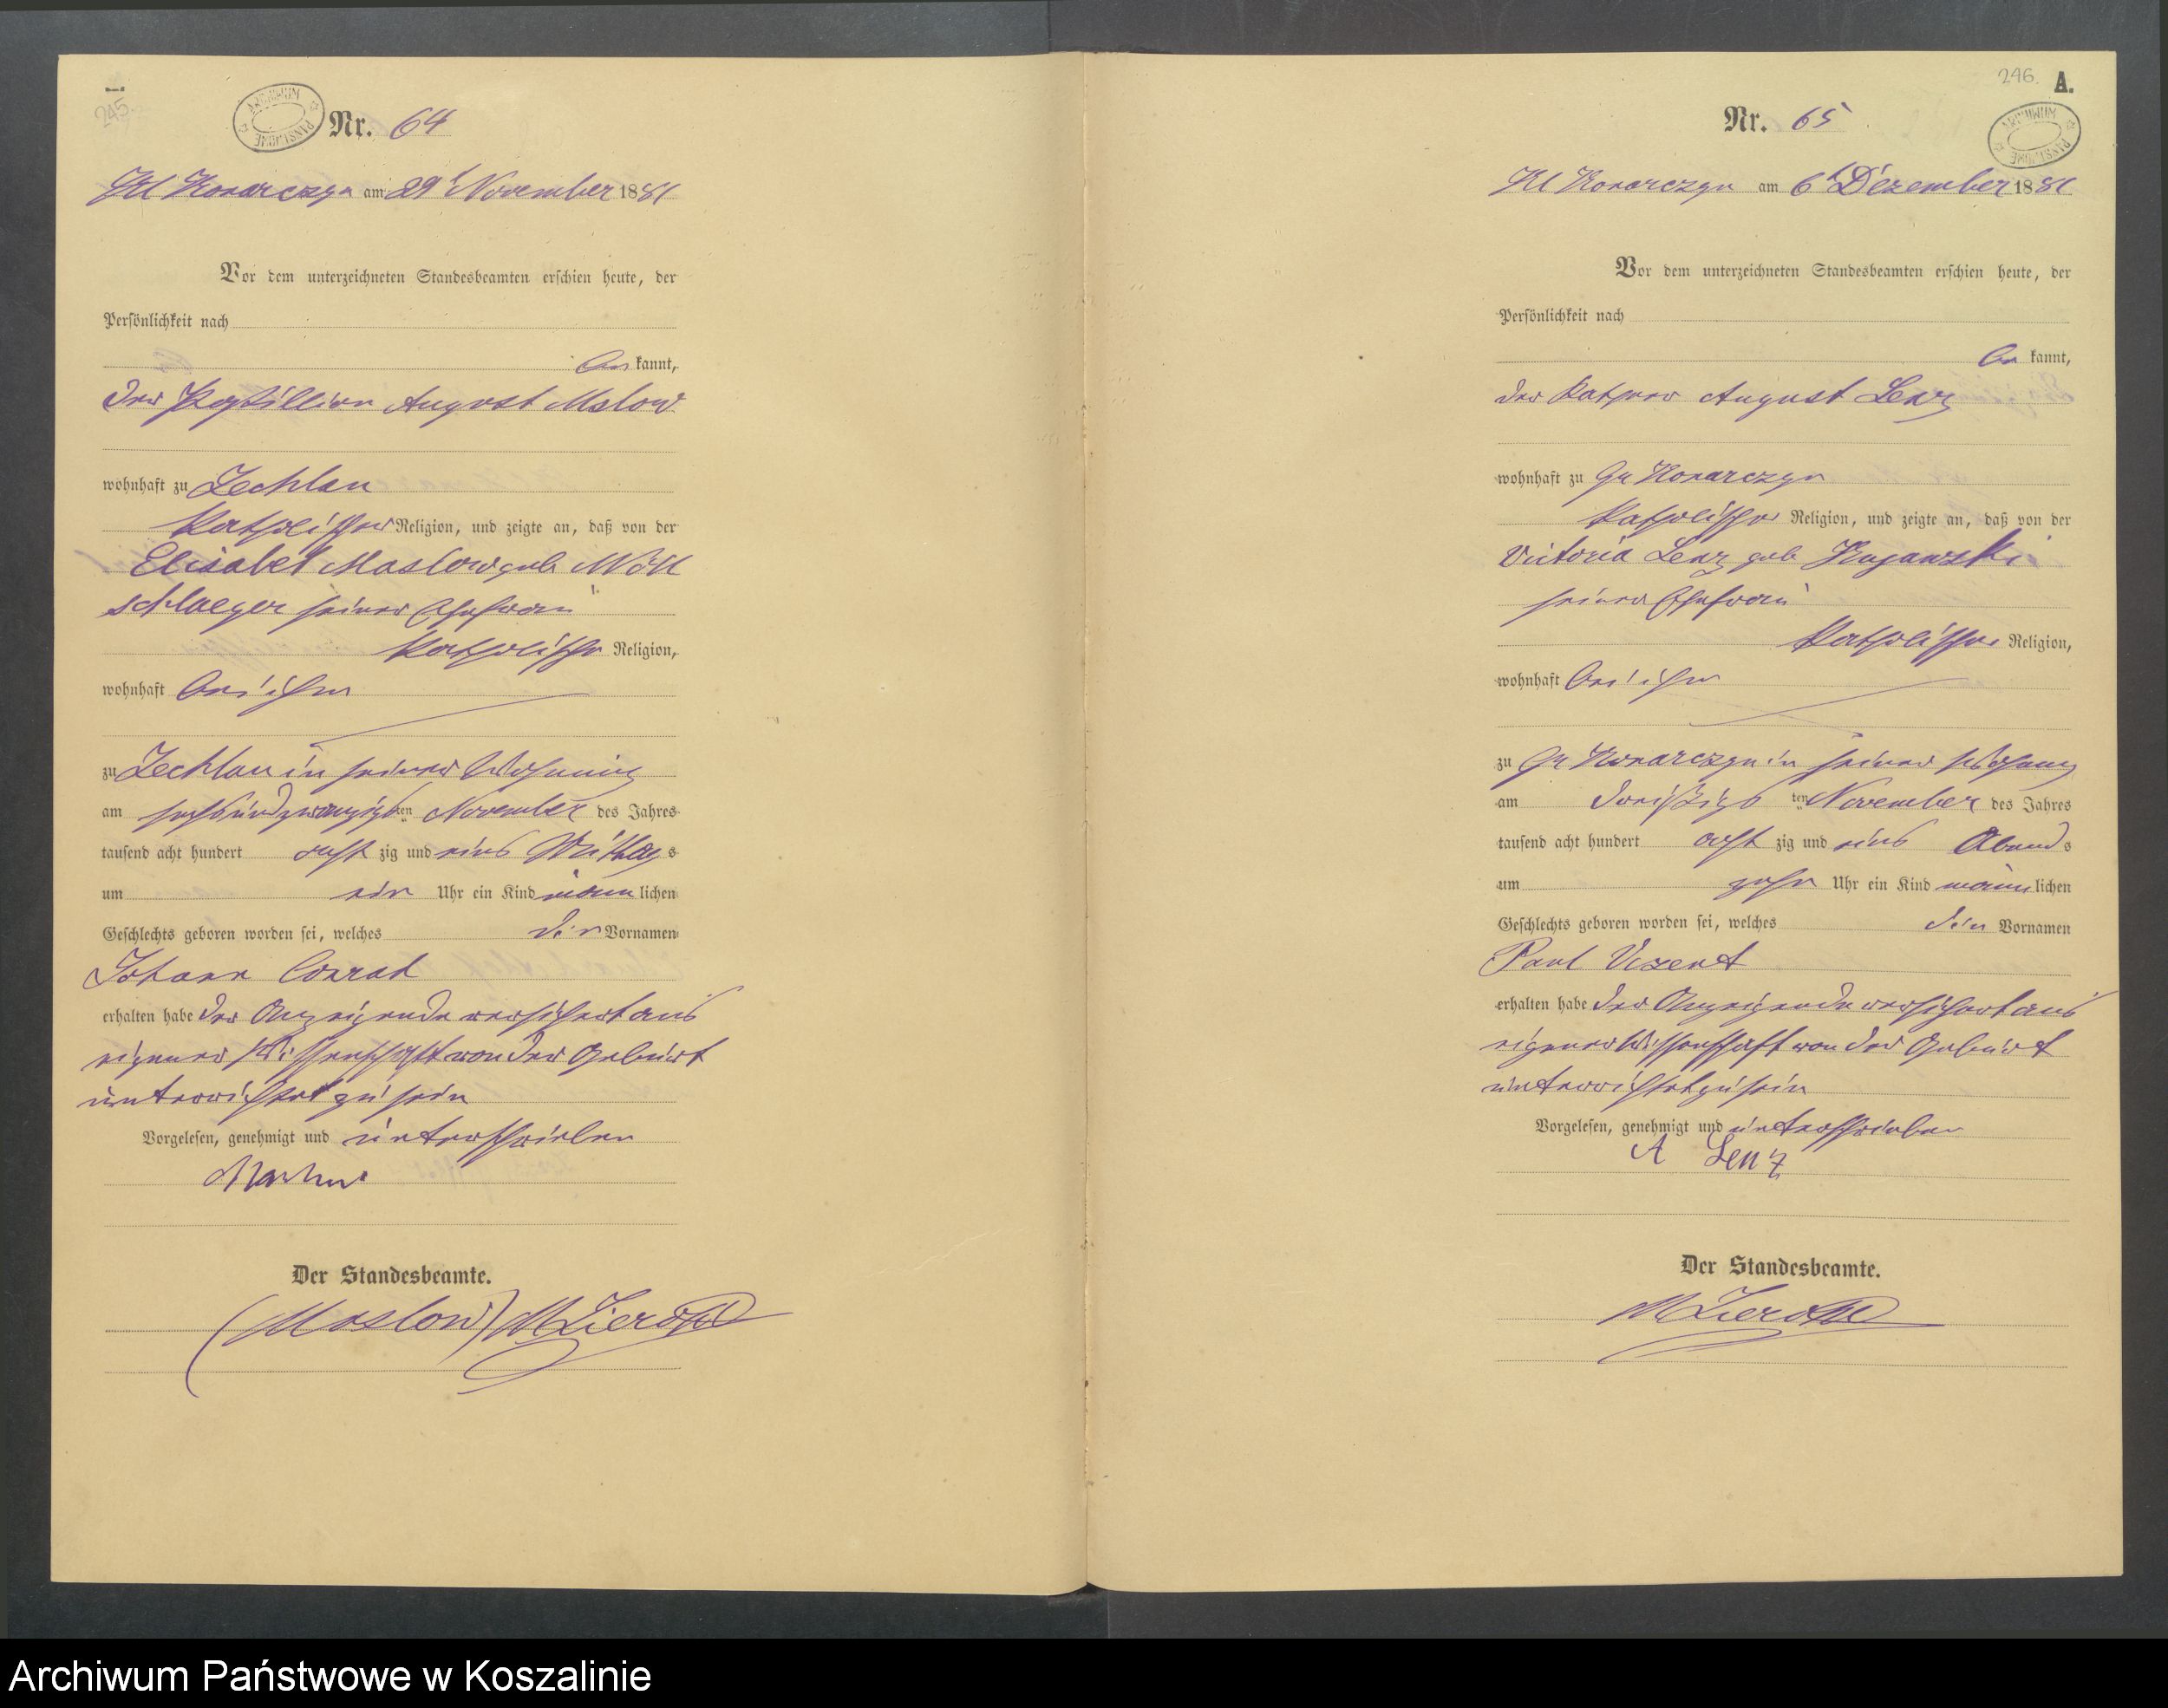 245
ARCHIWUM PAŃSTWOWE
Nr. 64
Kl Konarczyn am 29t November 1881
Vor dem unterzeichneten Standesbeamten erschien heute, der
Persönlichkeit nach
be kannt,
der Postillion August Maslow
wohnhaft zu Zechlau
katholischer Religion, und zeigte an, daß von der
Elisabet Maslow geb Nöll
schlaeger seiner Ehefrau
katholischer Religion,
wohnhaft bei ihm
zu Zechlau in seiner Wohnung
am sechsundzwanzigsten November des Jahres
tausend acht hundert acht zig und eins Mittags
um ein Uhr ein Kind männlichen
Geschlechts geboren worden sei, welches den Vornamen
Johann Conrad
erhalten habe der Anzeigende versichert aus
eigener Wissenschaft von der Geburt
unterrichtet zu sein
Vorgelesen, genehmigt und unterschrieben
Der Standesbeamte.
(Maslow) M Zieroth
246.
A.
ARCHIWUM PAŃSTWOWE
Nr. 65
Kl Konarczyn am 6t Dezember 1881
Vor dem unterzeichneten Standesbeamten erschien heute, der
Persönlichkeit nach
be kannt,
der Käthner August Lenz
wohnhaft zu Gr Konarczyn
katholischer Religion, und zeigte an, daß von der
Victoria Lenz geb Kujawski
seiner Ehefrau
katholischer Religion,
wohnhaft bei ihm
zu Gr Konarczyn in seiner Wohnung
am dreißigsten November des Jahres
tausend acht hundert acht zig und eins Abends
um zehn Uhr ein Kind männlichen
Geschlechts geboren worden sei, welches den Vornamen
Paul Vizent
erhalten habe der Anzeigende versichert aus
eigener Wissenschaft von der Geburt
unterrichtet zu sein
Vorgelesen, genehmigt und unterschrieben
A Lenz
Der Standesbeamte.
M Zieroth
Archiwum Państwowe w Koszalinie